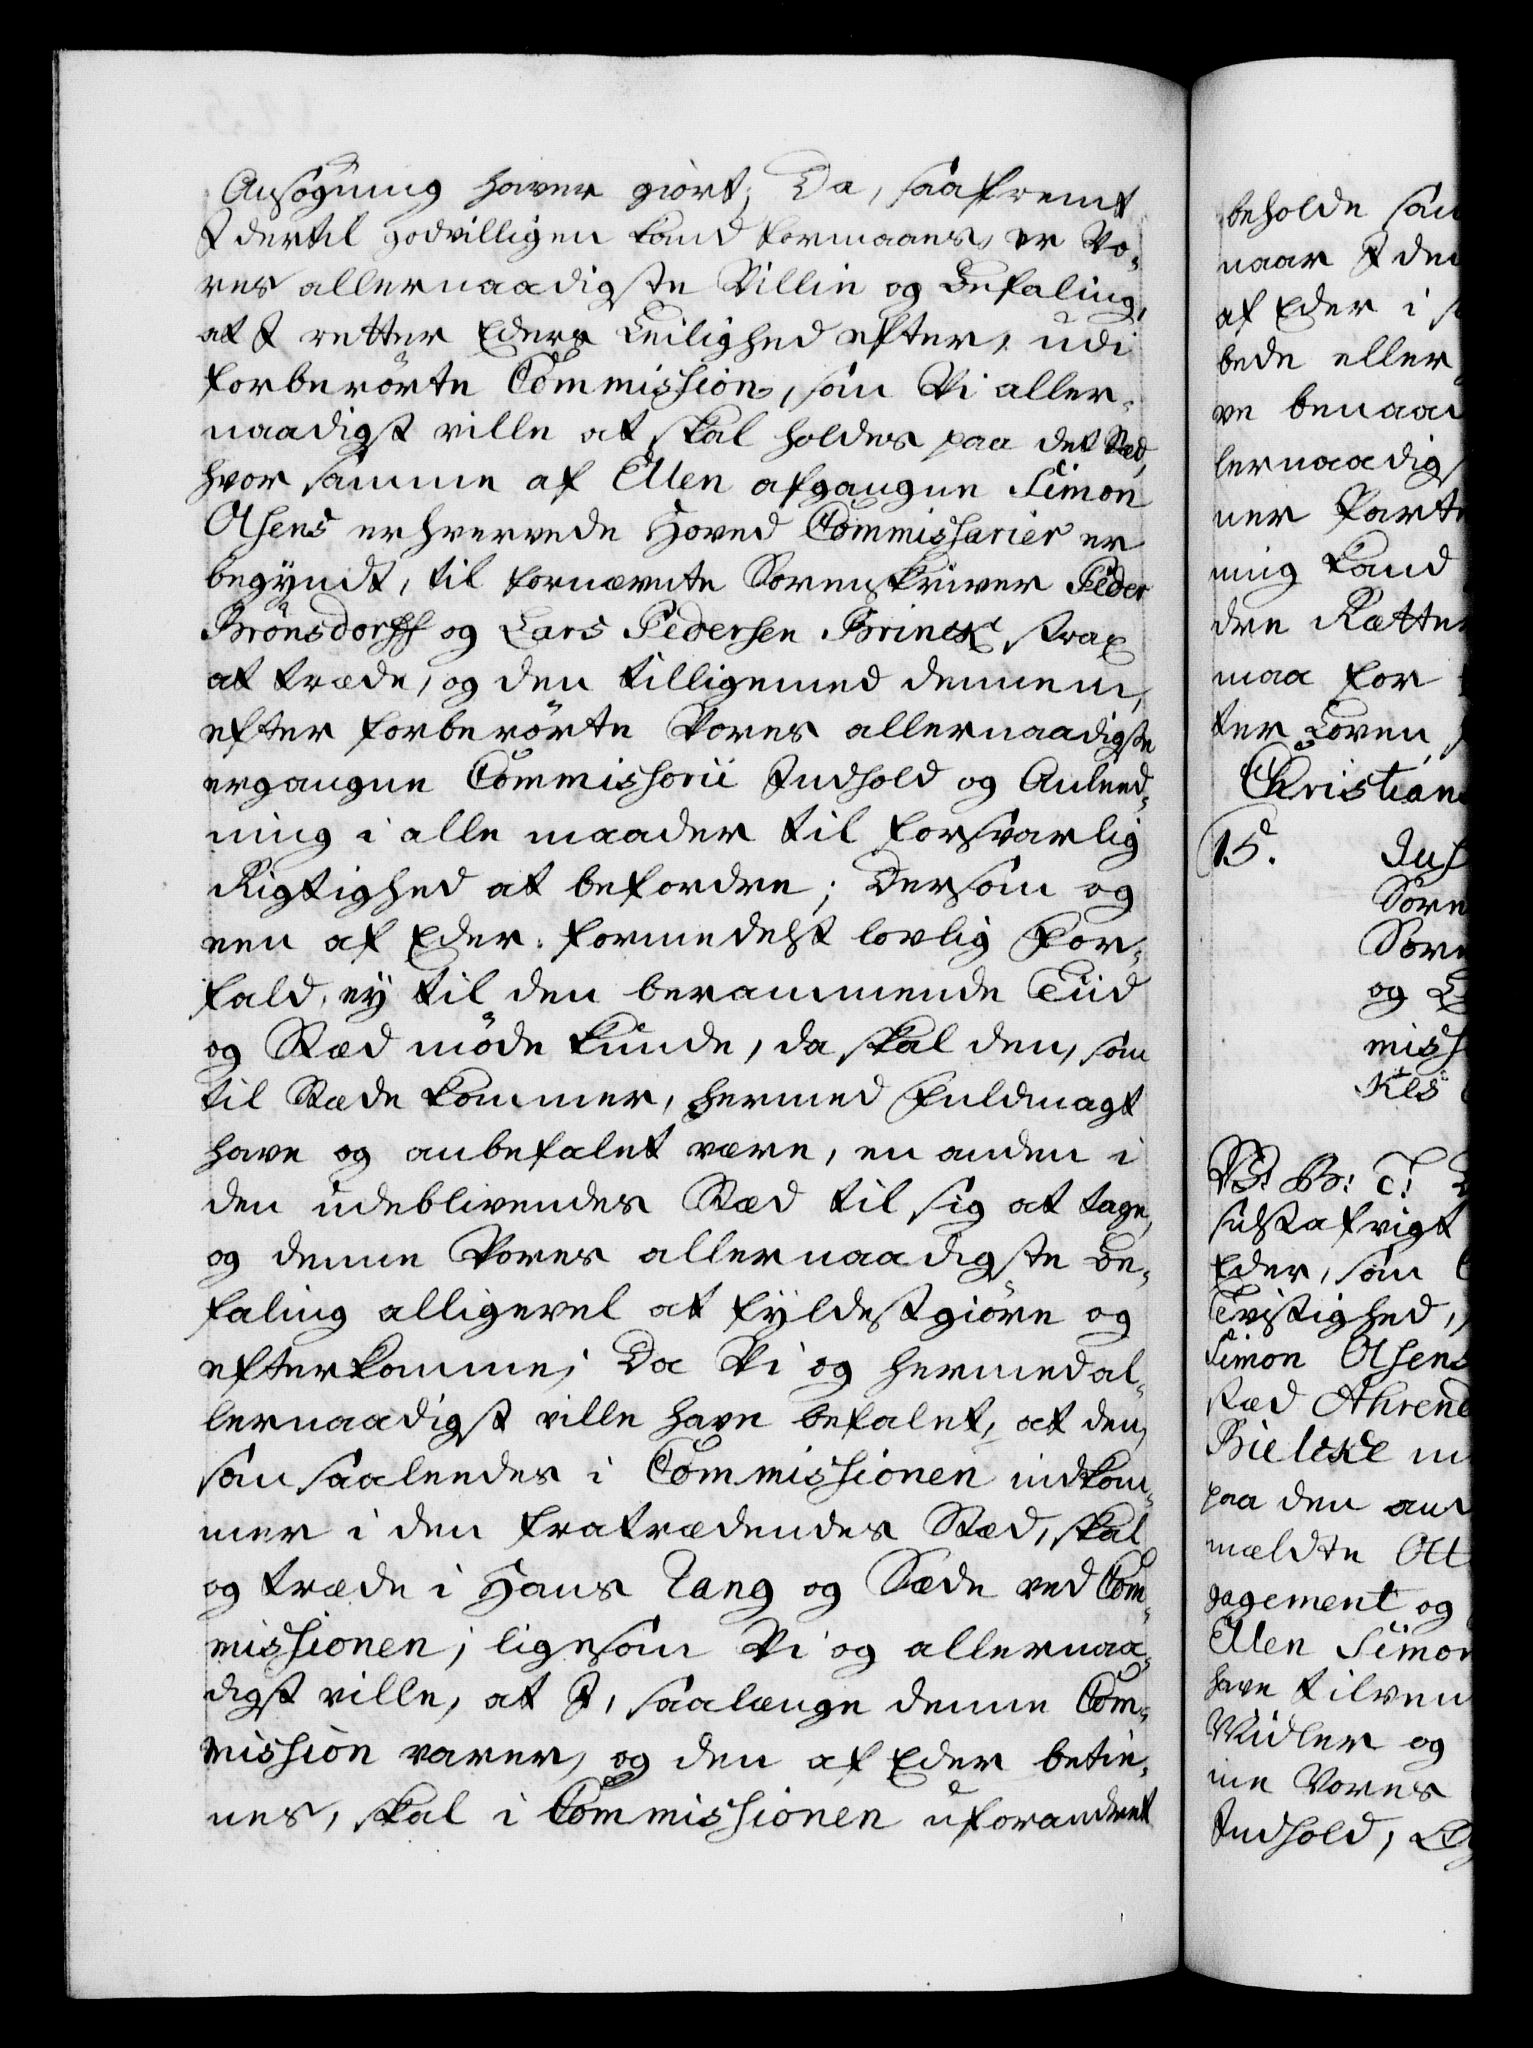 Ansøgning haver giort; Da, saafremt
I dertil godvilligen kand formaaes, er Vo-
res allernaadigste Villie og Befaling,
at I retter Eders Leilighed efter, udi
forberørte Commission, som Vi aller-
naadigst ville at skal holdes paa det Sted,
hvor samme af Ellen afgangne Simon
Olsens erhvervede Hoved Commissarier er
begyndt, til fornævnte Sorenskriver Peder
Brönsdorff og Lars Pedersen Brinck strax
at træde, og den tilligemed dennem,
efter forberørte Vores allernaadigste
ergangne Commissorii Indhold og Anleed-
ning i alle maader til forsvarlig
Rigtighed at befordre; Dersom og
een af Eder formedelst lovlig For-
fald, ey til den berammende Tiid
og Stæd møde kunde, da skal den, som
til Stæde kommer, hermed Fuldmagt
have og anbefalet være, en anden i
den udeblivendes Stæd til sig at tage,
og denne Vores allernaadigste Be-
faling alligevel at fyldestgiøre og
efterkomme; Da Vi og hermed al-
lernaadigst ville have befalet, at den,
som saaleedes i Commissionen indkom-
mer i den fratrædendes Stæd, skal
og træde i Hans Rang og Sæde ved Com-
missionen; ligesom Vi og allernaa-
digst ville, at I, saalænge denne Com-
mission varer, og den af Eder betie-
nes, skal i Commissionen uforandret
beholde
naar I
af Eder i
bede eller
ve
lernaadigs
ner
ning kand
dre Rætter
maa for
ter Loven
Christian
15.
og
Eder, som
Tvistighed,
Simon Olsens
stæd Ahrend
Bielcke
paa den
mældte
gagement og
Ellen Simon
have
Midler og
ne Vores
Indhold,